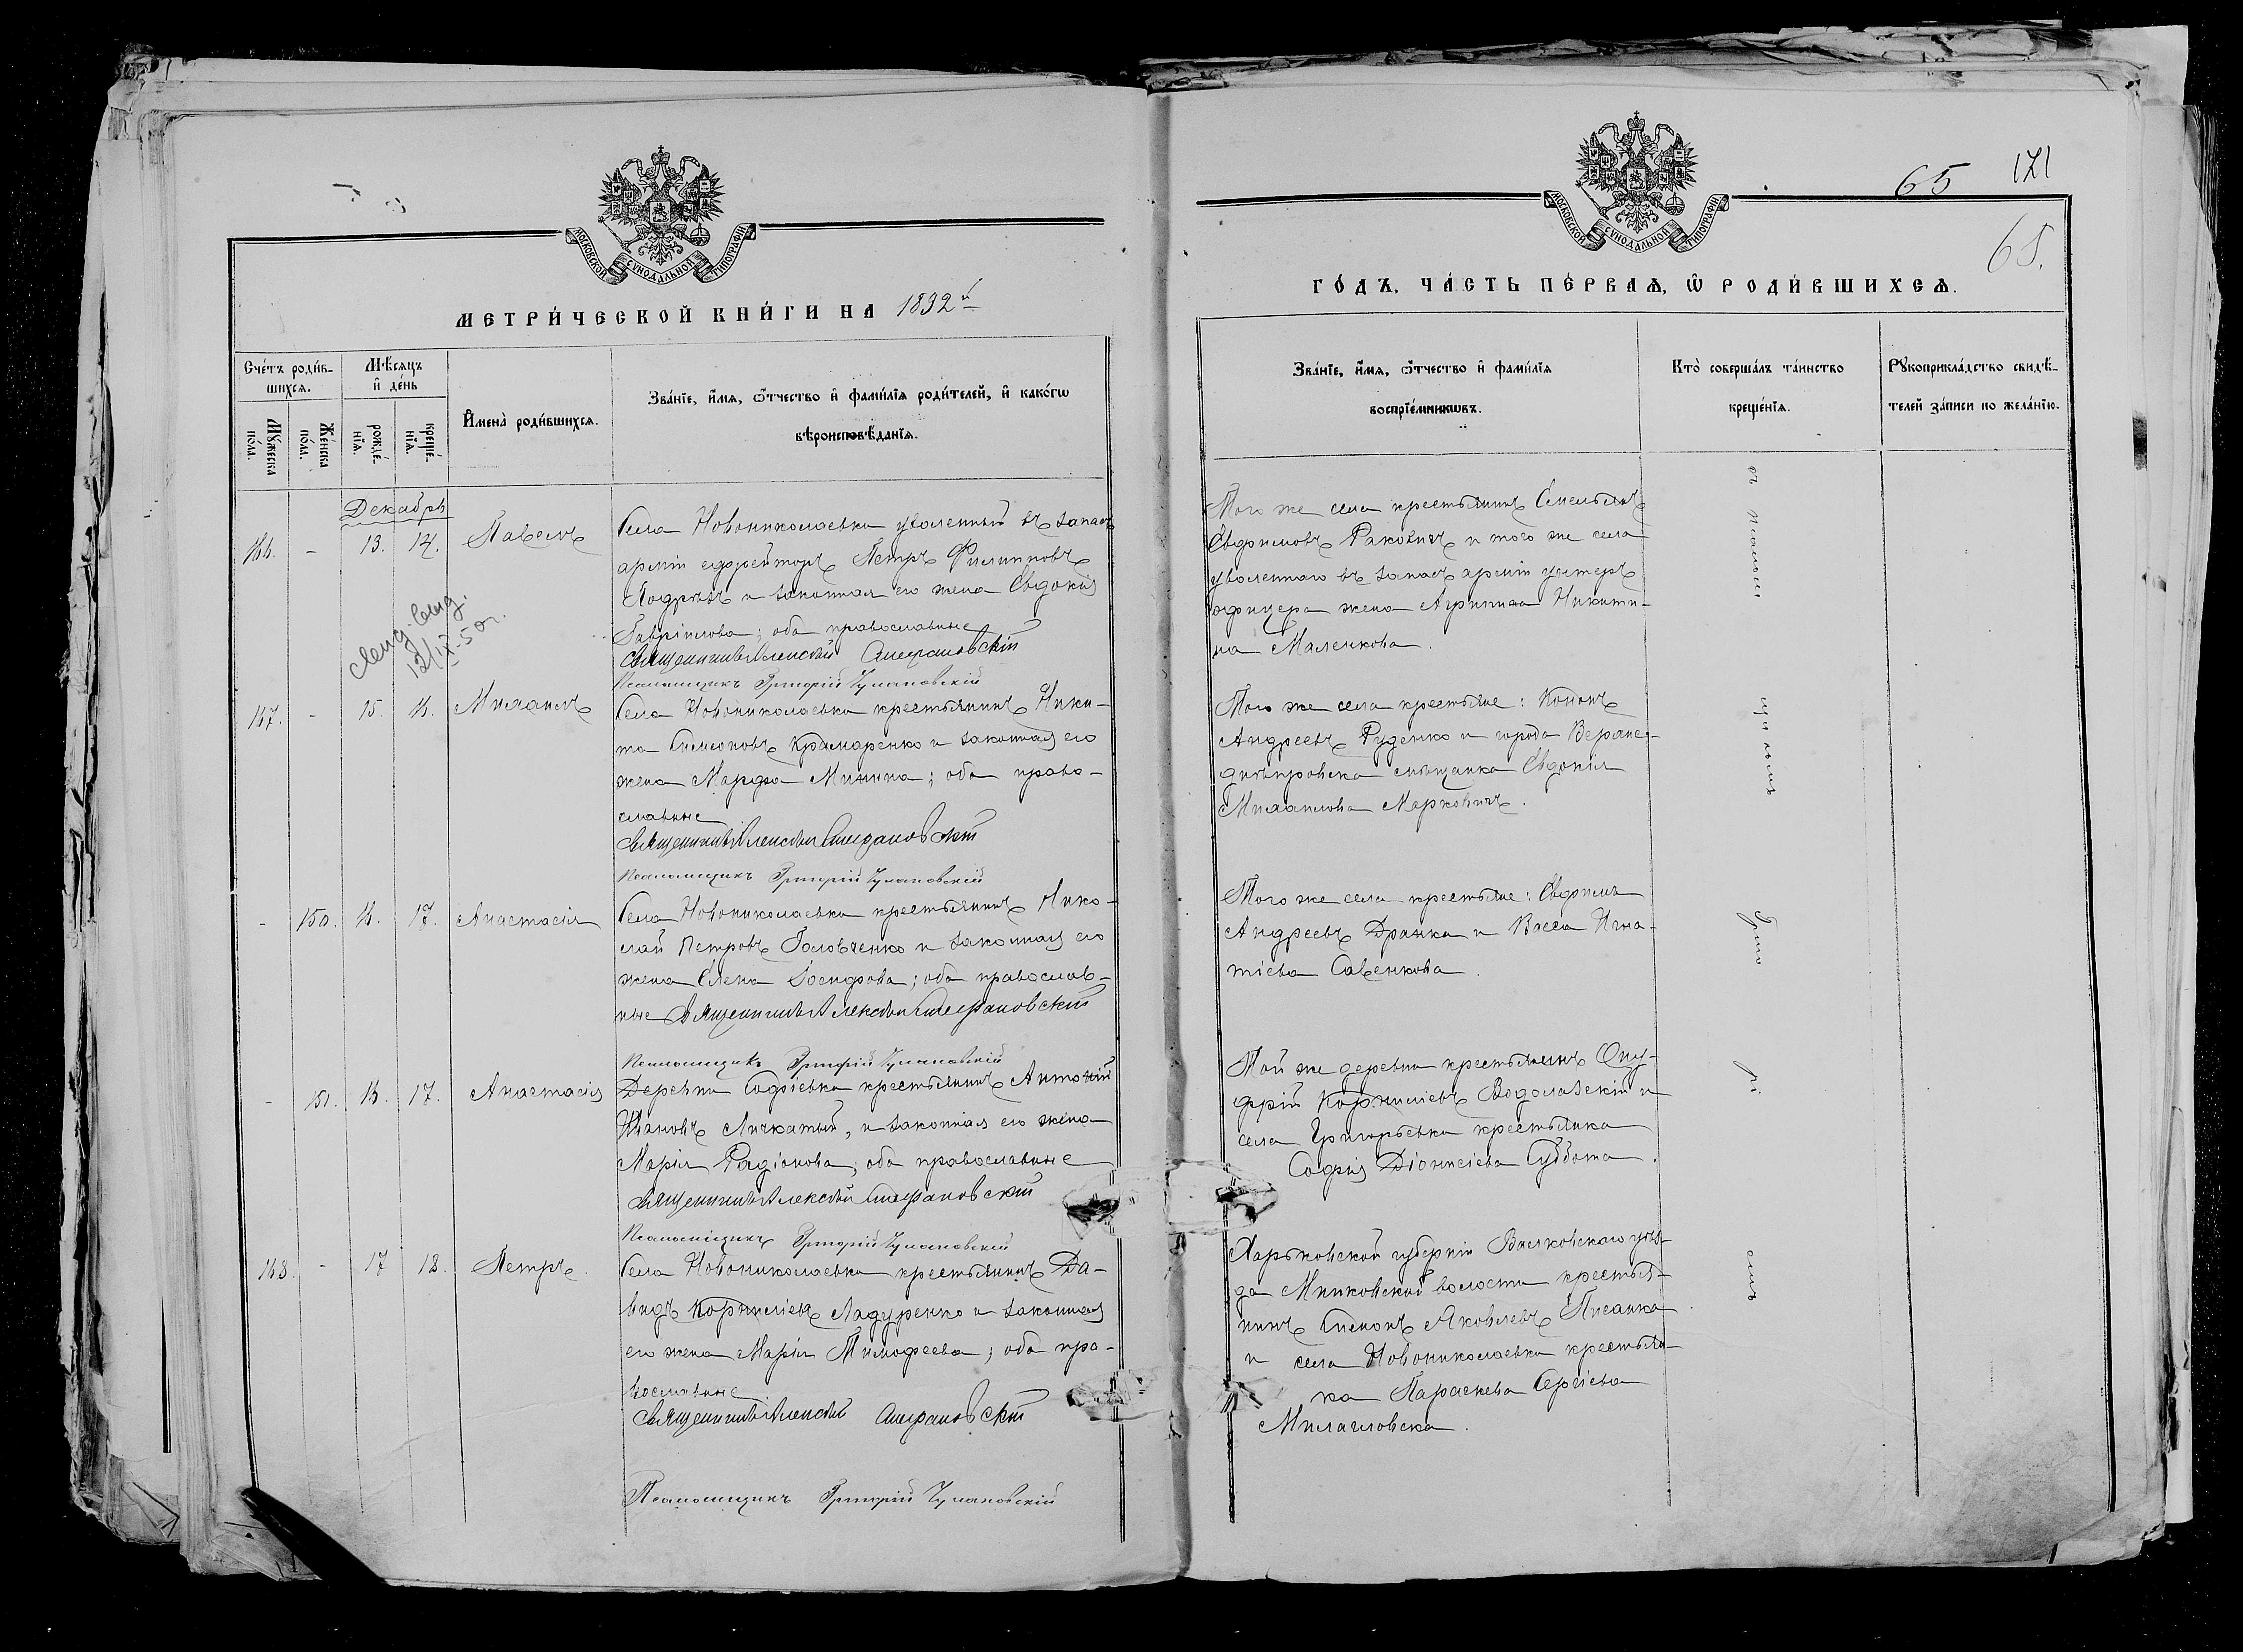 65 171
65.
МОСКОВСКОЙ СѴНОДАЛЬНОЙ ТИПОГРАФІИ
МЕТРИ́ЧЕСКОЙ КНИ́ГИ НА 1892 й
Сче́тъ роди́в-
шихсѧ.
Мѣ́сѧцъ
и҆ де́нь
Мꙋ́жеска
по́ла.
Же́нска
по́ла.
рожде́-
нїѧ.
креще́-
нїѧ.
И҆мена̀ роди́вшихсѧ.
Зва́нїе, и҆́мѧ, ѻ҆́тчество и҆ фами́лїѧ роди́телей, и҆ како́гѡ
вѣроисповѣ́данїѧ.
Декабрь
- 13. 14. Павелъ
Села Новониколаевки уволенный въ запасъ
арміи ефрейторъ Петръ Филипповъ
и законная его жена Евдокія
Гавріилова; оба православные
Священникъ Алексѣй Стефановскій
Псаломщикъ Григорій
12/IX-50г.
147. - 15. 16. Михаилъ
Села Новониколаевки крестьянинъ Ники-
та Симеоновъ Крамаренко и законная его
жена Марфа Минина; оба право-
славные
Священникъ Алексѣй Стефановскій
Псаломщикъ Григорій
- 150. 16. 17. Анастасія
Села Новониколаевки крестьянинъ Нико-
лай Петровъ Головченко и законная его
жена Елена Іосифова; оба православ-
ные Священникъ Алексѣй Стефановскій
Псаломщикъ Григорій
- 151. 16. 17. Анастасія
Деревни Софіевки крестьянинъ Антоній
Ивановъ Личкатый, и законная его жена
Марія Радіонова; оба православные
Священникъ Алексѣй Стефановскій
Псаломщикъ Григорій
148. - 17 18. Петръ
Села Новониколаевки крестьянинъ Да-
видъ Корниліевъ Ладуренко и законная
его жена Марія Тимофеева; оба пра-
вославные
Священникъ Алексѣй Стефановскій
Псаломщикъ Григорій
МОСКОВСКОЙ СѴНОДАЛЬНОЙ ТИПОГРАФІИ
ГО́ДЪ, ЧА́СТЬ ПЕ́РВАѦ, Ѡ҆ РОДИ́ВШИХСѦ.
Зва́нїе, и҆́мѧ, ѻ҆́тчество и҆ фами́лїѧ
воспрїе́мникѡвъ.
Кто̀ соверша́лъ та́инство
креще́нїѧ.
Рꙋкоприкла́дство свидѣ́-
телей за́писи по жела́нїю.
Того же села крестьянинъ Емельянъ
Евфимовъ Раковичъ и того же села
уволеннаго въ запасъ арміи унтеръ
офицера жена Агрипина Никити-
на Маленкова.
Того же села крестьяне: Кононъ
Андреевъ Руденко и города Верхне-
днѣпровска мѣщанка Евдокія
Михаилова Марковичъ.
Того же села крестьяне: Евфимъ
Андреевъ Дранка и Васса Игна-
тіева Савенкова.
Той же деревни крестьянинъ Ону-
фрій Корниліевъ Водолазскій и
села Григорьевки крестьянка
Софія Діонисіева Суббота.
Харьковской губерніи Валковскаго уѣз-
да волости крестья-
нинъ Симонъ Яковлевъ Писанка
и села Новониколаевки крестьян-
ка Параскева Сергіева